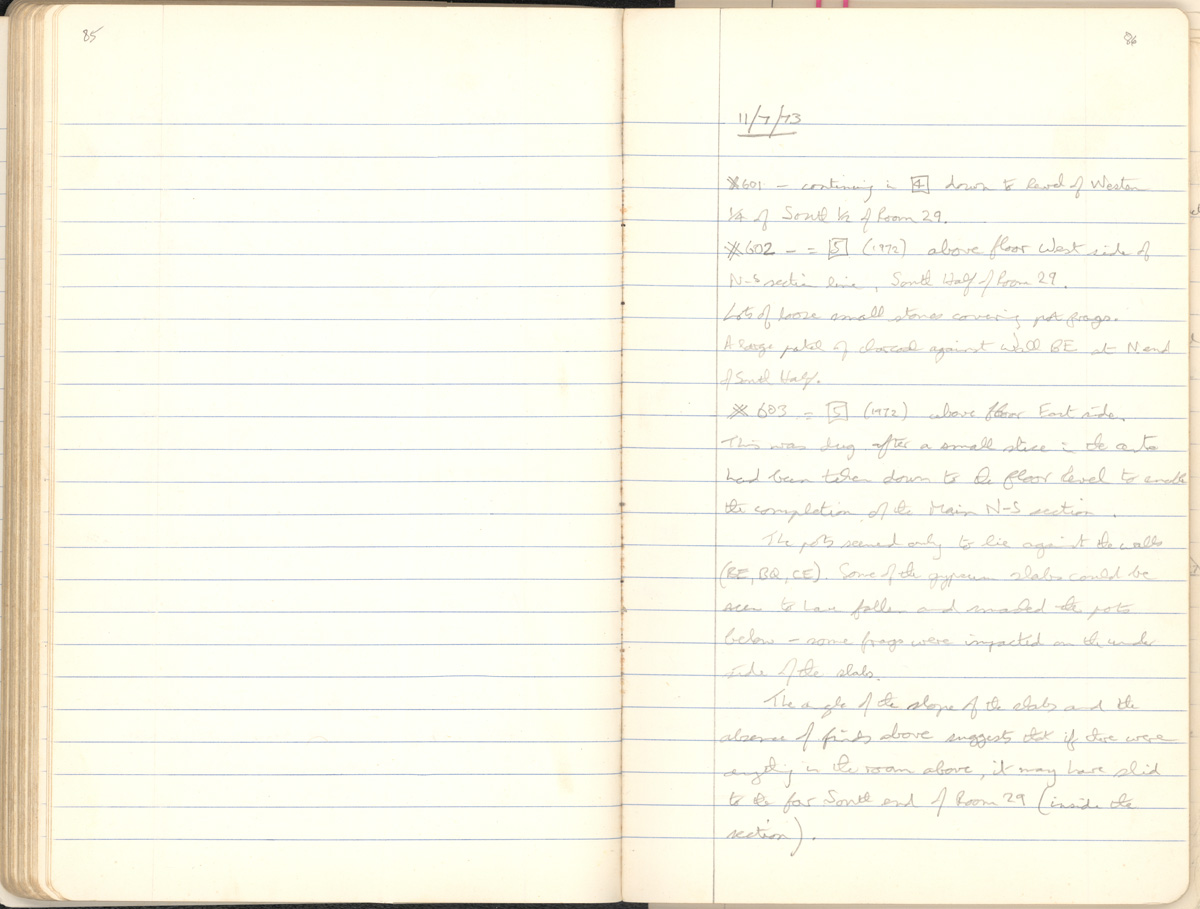 85
86
11/7/73
※601 - continuing in [4] down to level of Western
1/4 of South 1/2 of Room 29.
※602 - = [5] (1972) above floor West side of
N-S section line, South Half of Room 29.
Lots of loose small stones covering pot frags.
A large patch of charcoal against wall BE at N. end
of South Half.
※603 = [5] (1972) above floor East side.
This was dug after a small slice in the centre
had been taken down to the floor level to enable
the completion of the Main N-S section.
The pots seemed only to lie against the walls
(BE, BQ, CE). Some of the gypsum slabs could be
seen to have fallen and smashed the pots
below - some frags were impacted on the under
side of the slabs.
The angle of the slope of the slabs and the
absence of finds above suggests that if there were
anything in the room above, it may have slid
to the far South end of Room 29 (inside the
section).